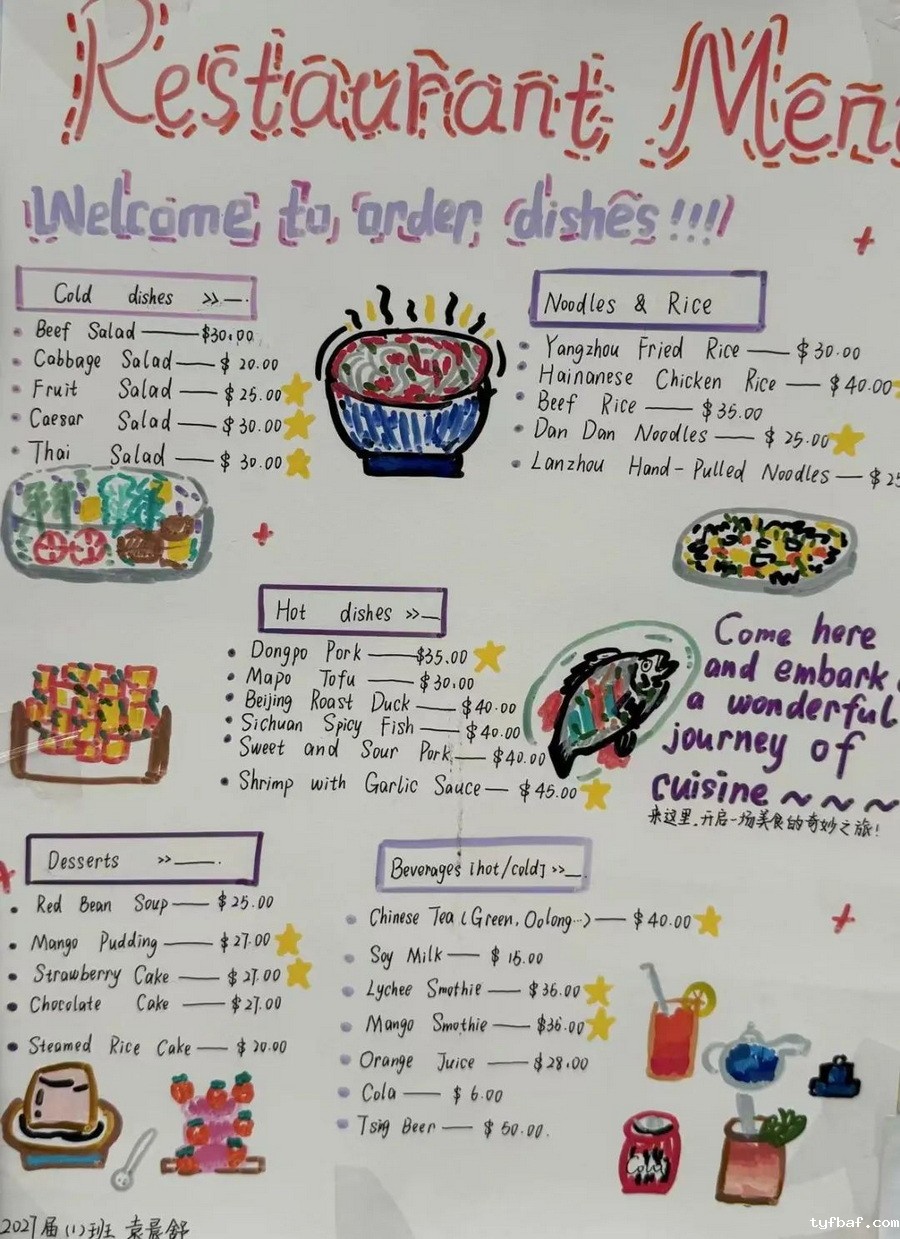 Restaurant Men
Welcome to order dishes!!!
Cold dishes >>—.
Beef Salad — $30.00
Cabbage Salad — $20.00
Fruit Salad — $25.00
Caesar Salad — $30.00
Thai Salad — $30.00
Noodles & Rice
Yangzhou Fried Rice — $30.00
Hainanese Chicken Rice — $40.00
Beef Rice — $35.00
Dan Dan Noodles — $25.00
Lanzhou Hand-Pulled Noodles — $25
Hot dishes >>—
Dongpo Pork — $35.00
Mapo Tofu — $30.00
Beijing Roast Duck — $40.00
Sichuan Spicy Fish — $40.00
Sweet and Sour Pork — $40.00
Shrimp with Garlic Sauce — $45.00
Come here
and embark
a wonderful
journey of
cuisine ~ ~ ~
来这里,开启一场美食的奇妙之旅!
Desserts >>—.
Red Bean Soup — $25.00
Mango Pudding — $27.00
Strawberry Cake — $27.00
Chocolate Cake — $27.00
Steamed Rice Cake — $20.00
Beverages [hot/cold] >>—.
Chinese Tea (Green, Oolong...) — $40.00
Soy Milk — $15.00
Lychee Smothie — $36.00
Mango Smothie — $36.00
Orange Juice — $28.00
Cola — $6.00
Tsig Beer — $50.00.
Cola
2027届(1)班 袁晨舒
tyfbaf.com